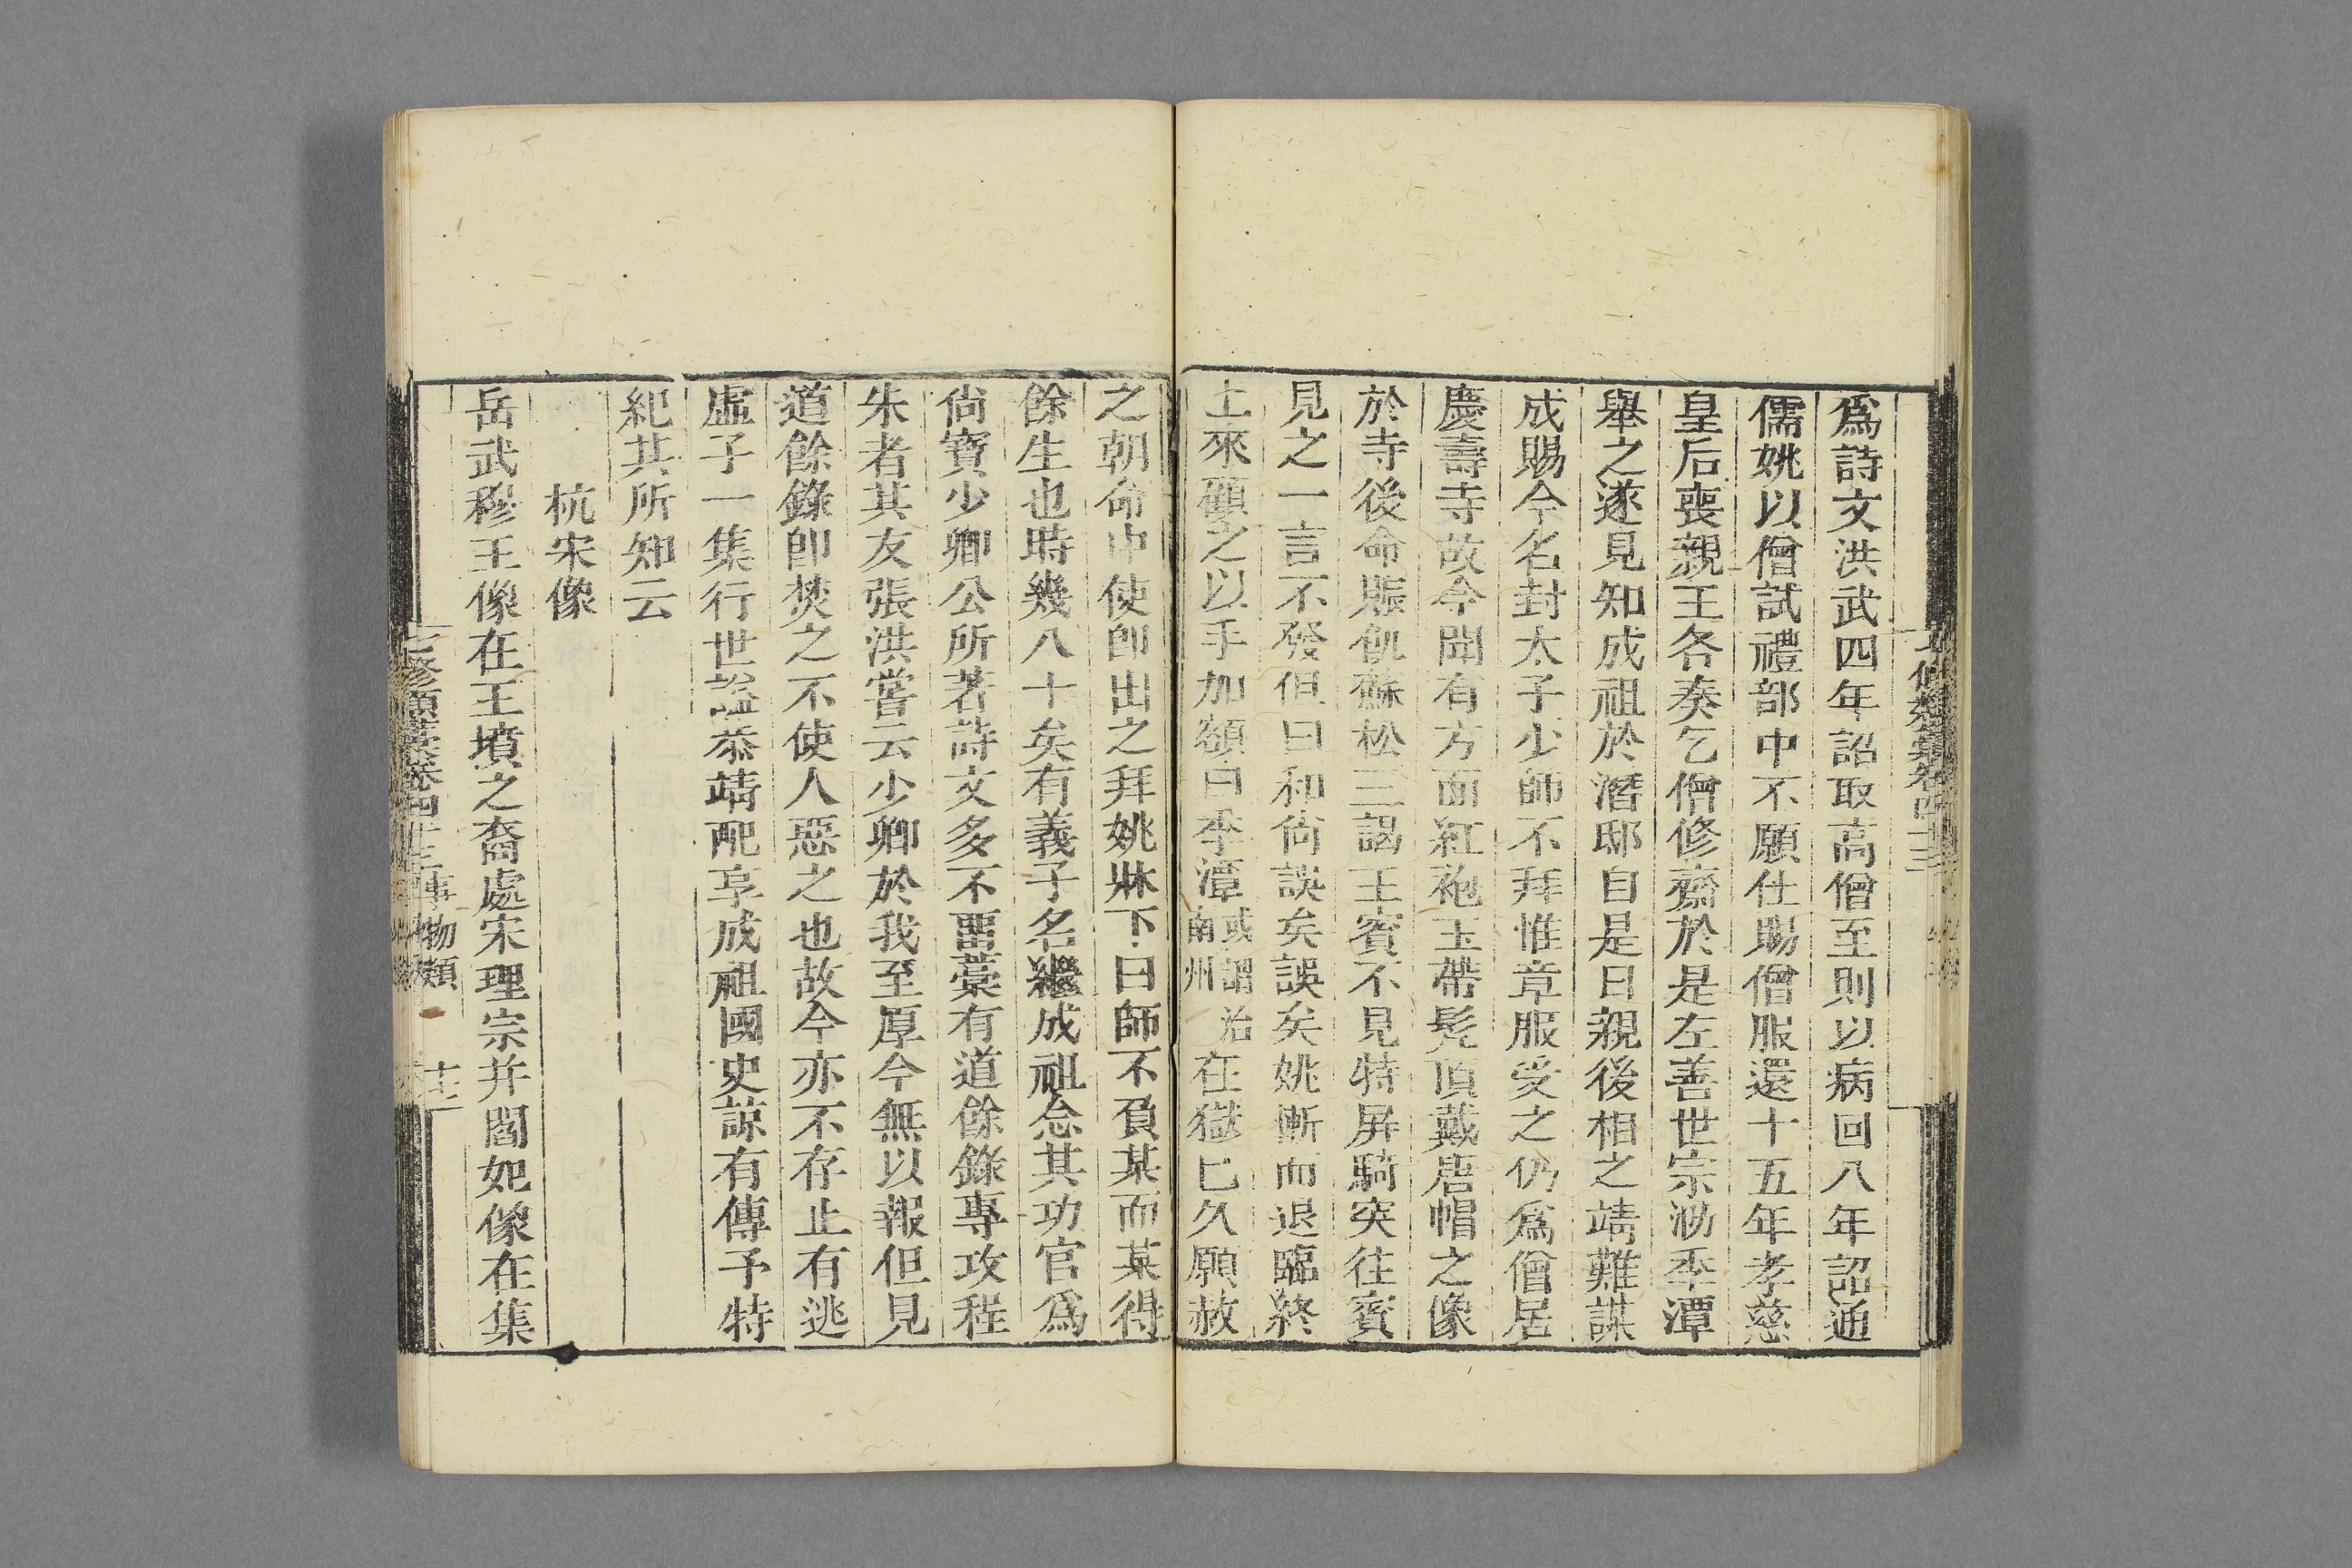 爲詩文洪武四年詔取高僧至則以病回八年詔通
儒姚以僧試禮部中不願仕賜僧服還十五年孝慈
皇后喪親王各奏乞僧修齋於是左善世宗泐季潭
舉之遂見知成祖於潛邸自是日親後相之靖難謀
成賜今名封太子少師不拜惟章服受之仍爲僧居
慶壽寺故今聞有方面紅袍玉帶髠頂戴唐帽之像
於寺後命賑飢蘇松三謁王賓不見特屏騎突往賓
見之一言不發但曰和尙誤矣誤矣姚慚而退臨終
上來顧之以手加額曰季潭或謂治南州在獄已久願赦
之朝命中使卽出之拜姚牀下曰師不負某而某得
餘生也時幾八十矣有義子名繼成祖念其功官爲
尙寶少卿公所著詩文多不畱藁有道餘錄專攻程
朱者其友張洪嘗云少卿於我至厚今無以報但見
道餘錄卽焚之不使人惡之也故今亦不存止有逃
虛子一集行世謚恭靖配享成祖國史諒有傳予特
紀其所知云
杭宋像
岳武穆王像在王墳之裔處宋理宗并閻妃像在集
七修類藁卷四十三 事物類 十三